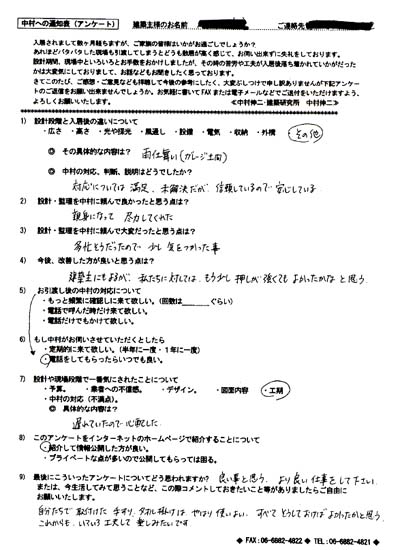 中村への通知表(アンケート) 建築主様のお名前 ご連絡先
入居されまして数ヶ月経ちますが、ご家族の皆様はいかがお過ごしでしょうか?
あれほどバタバタした現場も引渡してしまうとどうも敷居が高く感じて、お伺い出来ずに失礼をしております。
設計期間、現場中といろいろとお手数をおかけしましたが、その時の苦労や工夫が入居後落ち着かれていかがだった
かは大変気にしておりまして、お話などもお聞きしたく思っております。
さてこのたび、ご感想・ご意見なども拝聴して今後の参考にしたく、大変ぶしつけで申し訳ありませんが下記アンケー
トのご返信をお願い出来ませんでしょうか。お気軽に書いてFAXまたは電子メールなどでご送付をいただけますよう、
よろしくお願いいたします。 ≪中村伸二・建築研究所 中村伸二≫
1) 設計段階と入居後の違いについて
・広さ ・高さ ・光や採光 ・風通し ・設備 ・電気 ・収納 ・外構 ・その他
◎ その具体的な内容は? 雨仕舞い(ガレージ土間)
◎ 中村の対応、判断、説明はどうでしたか?
対応については満足、未解決だが、信頼しているので安心している
2) 設計・監理を中村に頼んで良かったと思う点は?
親身になって 尽力してくれた
3) 設計・監理を中村に頼んで大変だったと思う点は?
多忙そうだったので 少し気をつかった事
4) 今後、改善した方が良いと思う点は?
建築主にもよるが、私たちに対しては、もう少し押しが強くてもよかったかなと思う。
5) お引渡し後の中村の対応について
・もっと頻繁に確認しに来て欲しい。(回数は____ぐらい)
・電話で呼んだ時だけ来て欲しい。
・電話だけでもかけて欲しい。
6) もし中村がお伺いさせていただくとしたら
・定期的に来て欲しい。(半年に一度・1年に一度)
・電話をしてもらったらいつでも良い。
7) 設計や現場段階で一番気にされたことについて
・予算。 ・業者への不信感。 ・デザイン。 ・図面内容 ・工期
・中村の対応(不満点)。
◎ 具体的な内容は?
遅れていたので心配した
8) このアンケートをインターネットのホームページで紹介することについて
・紹介して情報公開した方が良い。
・プライベートな点が多いので公開してもらっては困る。
9) 最後にこういったアンケートについてどう思われますか? 良い事と思う。より良い仕事をして下さい
または、今生活してみて思うことなど、この際コメントしておきたいこと等がありましたらご自由に
お願いいたします。
自分たちで取付けた 手すり、タオル掛けは やはり使いよい。すべて そうしておけばよかったかと思う。
これからも、いろいろ工夫して 楽しみたいです。
◆ FAX:06-6882-4822 ◆ TEL:06-6882-4821 ◆